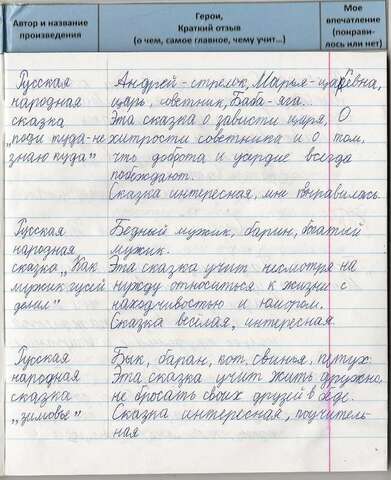 Автор и название
произведения
Герои,
Краткий отзыв
(о чем, самое главное, чему учит...)
Мое
впечатление
(понрави-
лось или нет)
Русская
народная
сказка
„поди туда-не
знаю куда"
Андрей-стрелок, Марья-царевна,
царь, советник, Баба-яга.
Эта сказка о зависти царя, о
хитрости советника и о том,
что доброта и усердие всегда
побеждают.
Сказка интересная, мне понравилась.
Русская
народная
сказка „Как
мужик гусей
делил"
Бедный мужик, барин, богатый
мужик.
Эта сказка учит несмотря на
нужду относиться к жизни с
находчивостью и юмором.
Сказка весёлая, интересная.
Русская
народная
сказка
„зимовье"
Бык, баран, кот, свинья, петух.
Эта сказка учит жить дружно,
не бросать своих друзей в беде.
Сказка интересная, поучитель-
ная